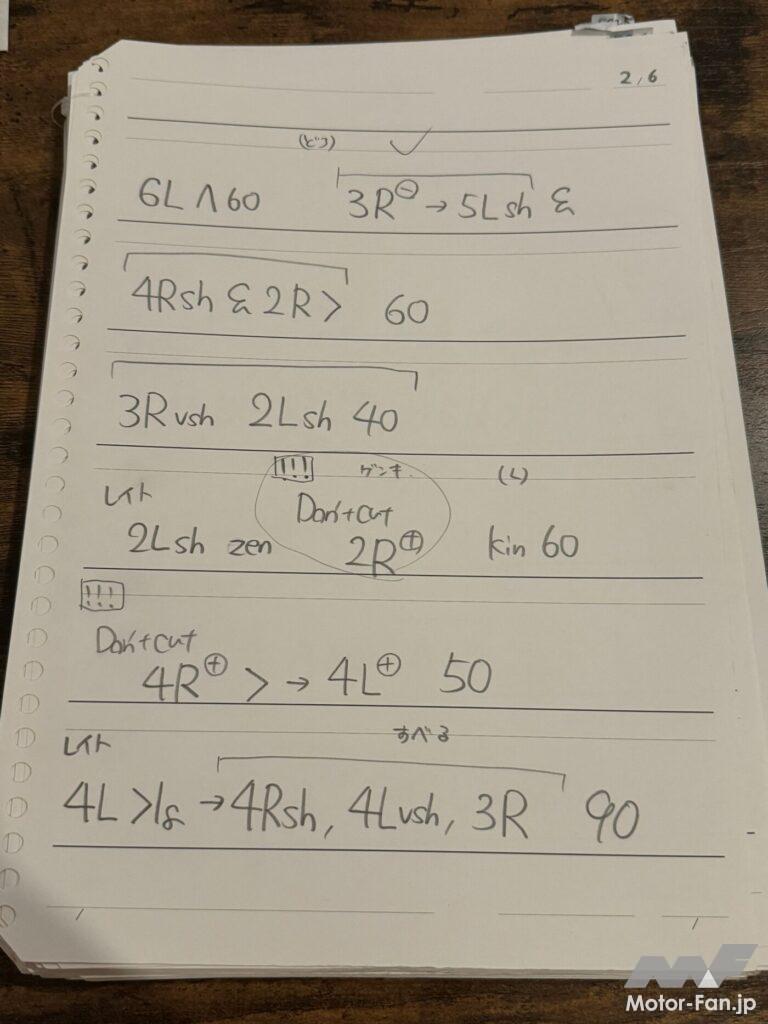 2/6
(どろ) ✓
6L ∧ 60 3R⊖→5Lsh &
4Rsh & 2R> 60
3R vsh 2Lsh 40
!!! ゲンキ (L)
レイト Don't cut
2Lsh zen 2R⊕ kin 60
!!!
Don't cut
4R⊕ > → 4L⊕ 50
レイト すべる
4L >lg →4Rsh, 4Lvsh, 3R 90
Motor-Fan.jp